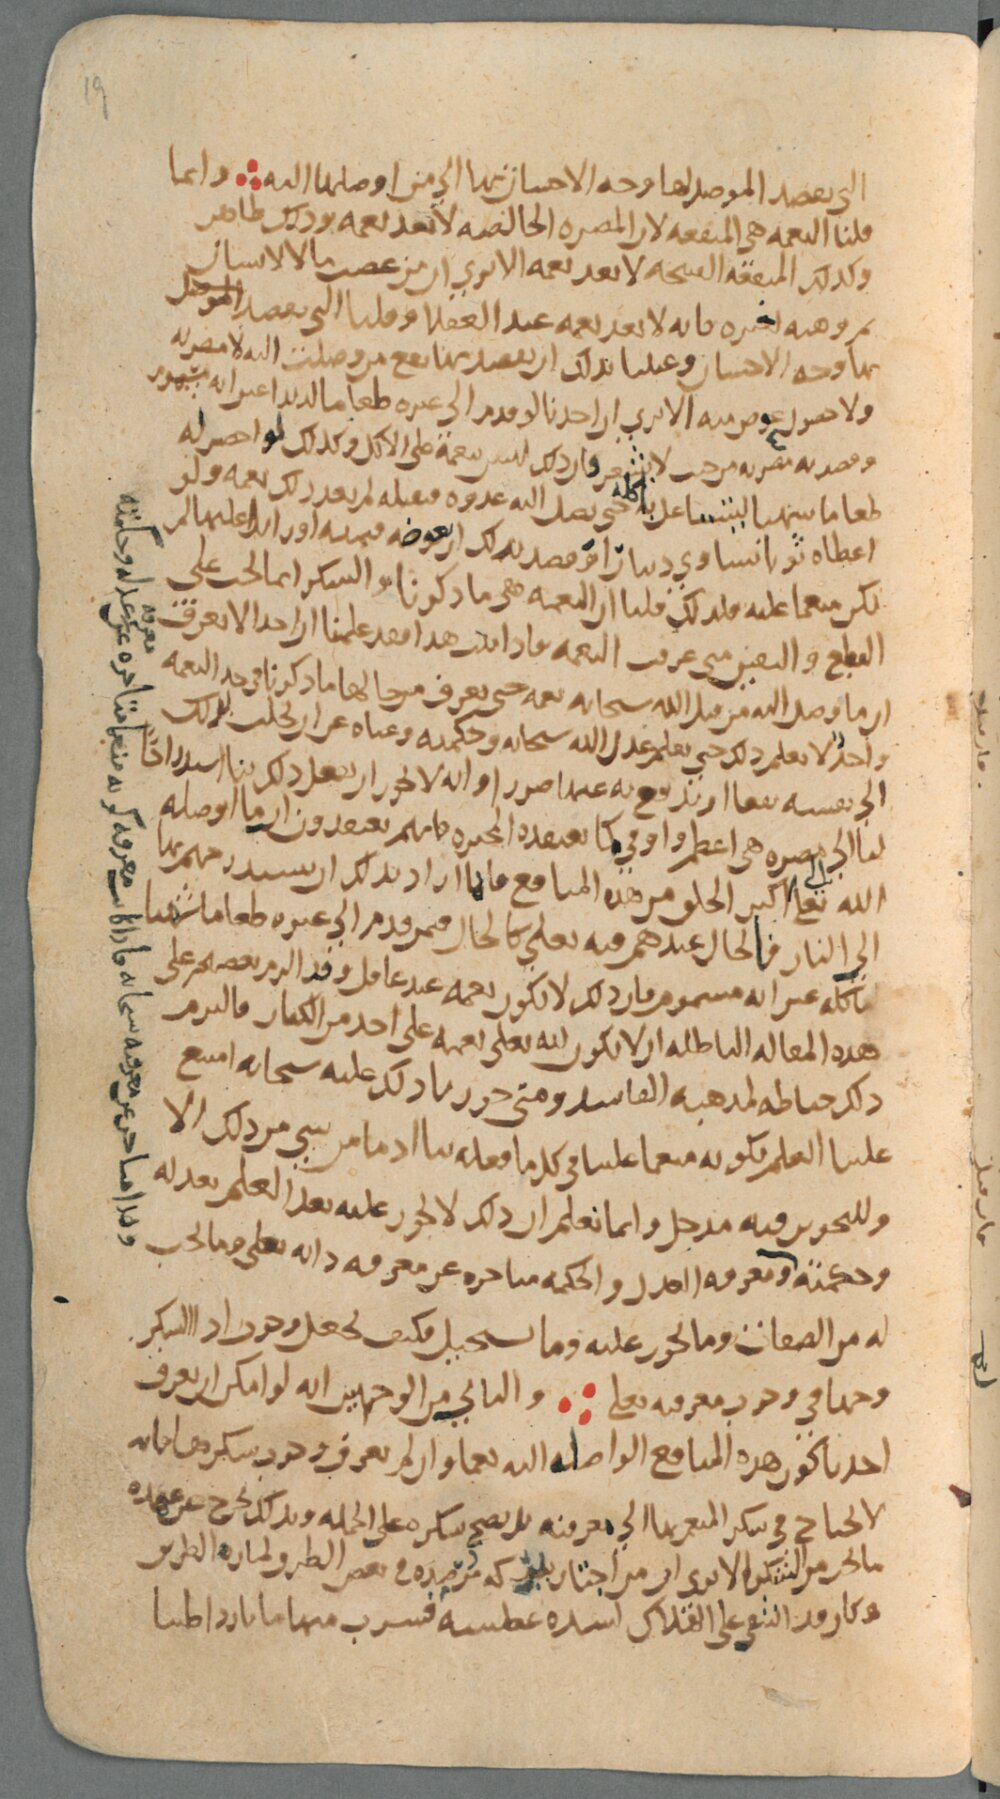 التي يقصد الموصل لها وجه الاحسان بها الى من اوصلها اليه وانما
قلنا النعمه هي المنفعه لان المضره الخالصه لا تعد نعمه وذلك ظاهر
وكذلك المنفعه القبيحه لا تعد نعمه الا ترى ان من غصب مالا لانسان
ثم وهبه لغيره فانه لا يعد نعمه عند العقلا وقلنا التي يقصد الموصل
بها وجه الاحسان وعنينا بذلك ان يقصد بها نفع من وصلت اليه لا مضرته
ولا حصول عوض منه الا ترى ان احدنا لو قدم الى غيره طعاما لذيذا غير انه مسموم
وقصد به مضرته من حيث لا يشعر فان ذلك ليس بنعمة على الآكل وكذلك لو احضر له
طعاما شهيا ليتشاغل باكله حتى يصل اليه عدوه فيقتله لم يعد ذلك نعمه ولو
اعطاه ثوبا يساوي دينارا وقصد بذلك ان يعوضه قيمته او ازيد عليها لم
يكن منعما عليه فلذلك قلنا ان النعمه هي ما ذكرنا والشكر انما يجب على
القطع واليقين متى عرفت النعمه فاذا ثبت هذا فقد علمنا ان احدا لا يعرف
ان ما وصل اليه من قبل الله سبحانه نعمه حتى يعرف من حالها ما ذكرنا في حد النعمه
واحدنا لا يعلم ذلك حتى يعلم عدل الله سبحانه وحكمته وغناه عن ان يجلب بذلك
الى نفسه نفعا او يدفع به عنها ضررا وانه لا يجوز ان يفعل ذلك بنا استدراجًا
لنا الى مضره هي اعظم واوفى كما يعتقده المجبره فانهم يعتقدون ان ما اوصله
الله تعالى الى اكثر الخلق من هذه المنافع فانما اراد بذلك ان يستدرجهم بها
الى النار فالحال عندهم فيه تعالى كالحال فيمن قدم الى غيره طعاما شهيا
ياكله غير انه مسموم فان ذلك لا يكون نعمه عند عاقل وقد التزم بعضهم على
هذه المقاله الباطله ان لا يكون لله تعالى نعمه على احد من الكفار فالتزم
ذلك حياطه لمذهبه الفاسد ومتى جوزنا ذلك عليه سبحانه امتنع
علينا العلم بكونه منعما علينا في كل ما فعله بنا اذ ما من شي من ذلك الا
وللتجويز فيه مدخل وانما نعلم ان ذلك لا يجوز عليه بعد العلم بعدله
وحكمته ومعرفه العدل والحكمه متاخره عن معرفه ذاته تعالى وما يجب
له من الصفات وما يجوز عليه وما يستحيل فكيف يجعل وجوب اداء الشكر
وجها في وجوب معرفته تعالى والثاني من الوجهين انه لو امكن ان يعرف
احدنا كون هذه المنافع الواصله اليه نعما وان لم يعرف وجوب شكرها فانه
لا يحتاج في شكر المنعم بها الى معرفته بل يصح شكره على الجمله وبذلك يخرج عن عهده
ما يجب من الشكر الا ترى ان من اجتاز ببركه مرصده في بعض الطرق لماره الطريق
وكان قد اشفى على الهلاك لشده عطشه فشرب منها ماء باردا طيبا
وهذا متاخر عن معرفته سبحانه فاذا كانت معرفه كونه منعما متاخره عن معرفه عدله وحكمته